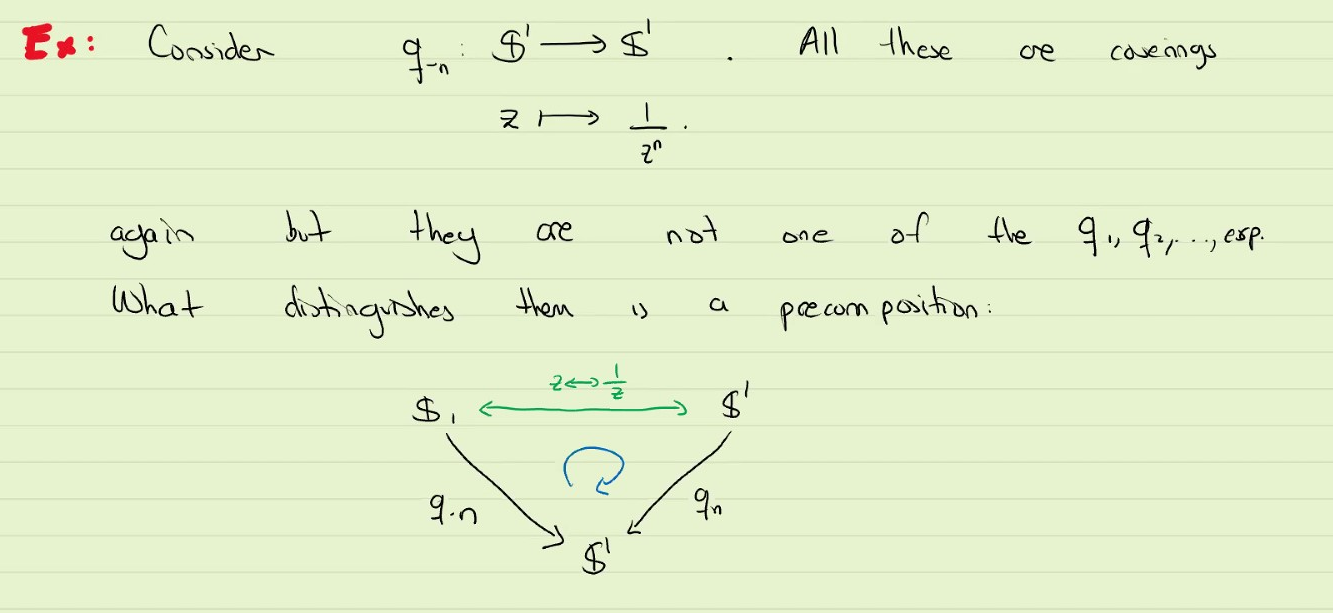 Ex: Consider q₋ₙ: 𝕊¹ ⟶ 𝕊¹ . All these are coverings
z ⟼ 1/zⁿ .
again but they are not one of the q₁, q₂, ..., exp.
What distinguishes them is a precomposition:
z ↔ 1/z
𝕊¹ ⟷ 𝕊¹
q₋ₙ qₙ
𝕊¹